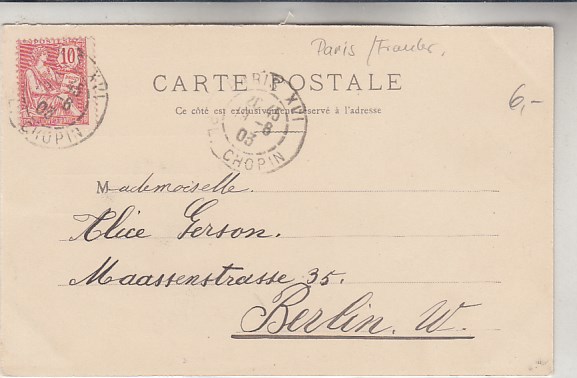 Paris / Frankr.
10
CARTE POSTALE
6,-
Ce côté est exclusivement réservé à l'adresse
PARIS XVI
8
03
CHOPIN
Mademoiselle.
Alice Gerson.
Maassenstrasse 35.
Berlin. W.